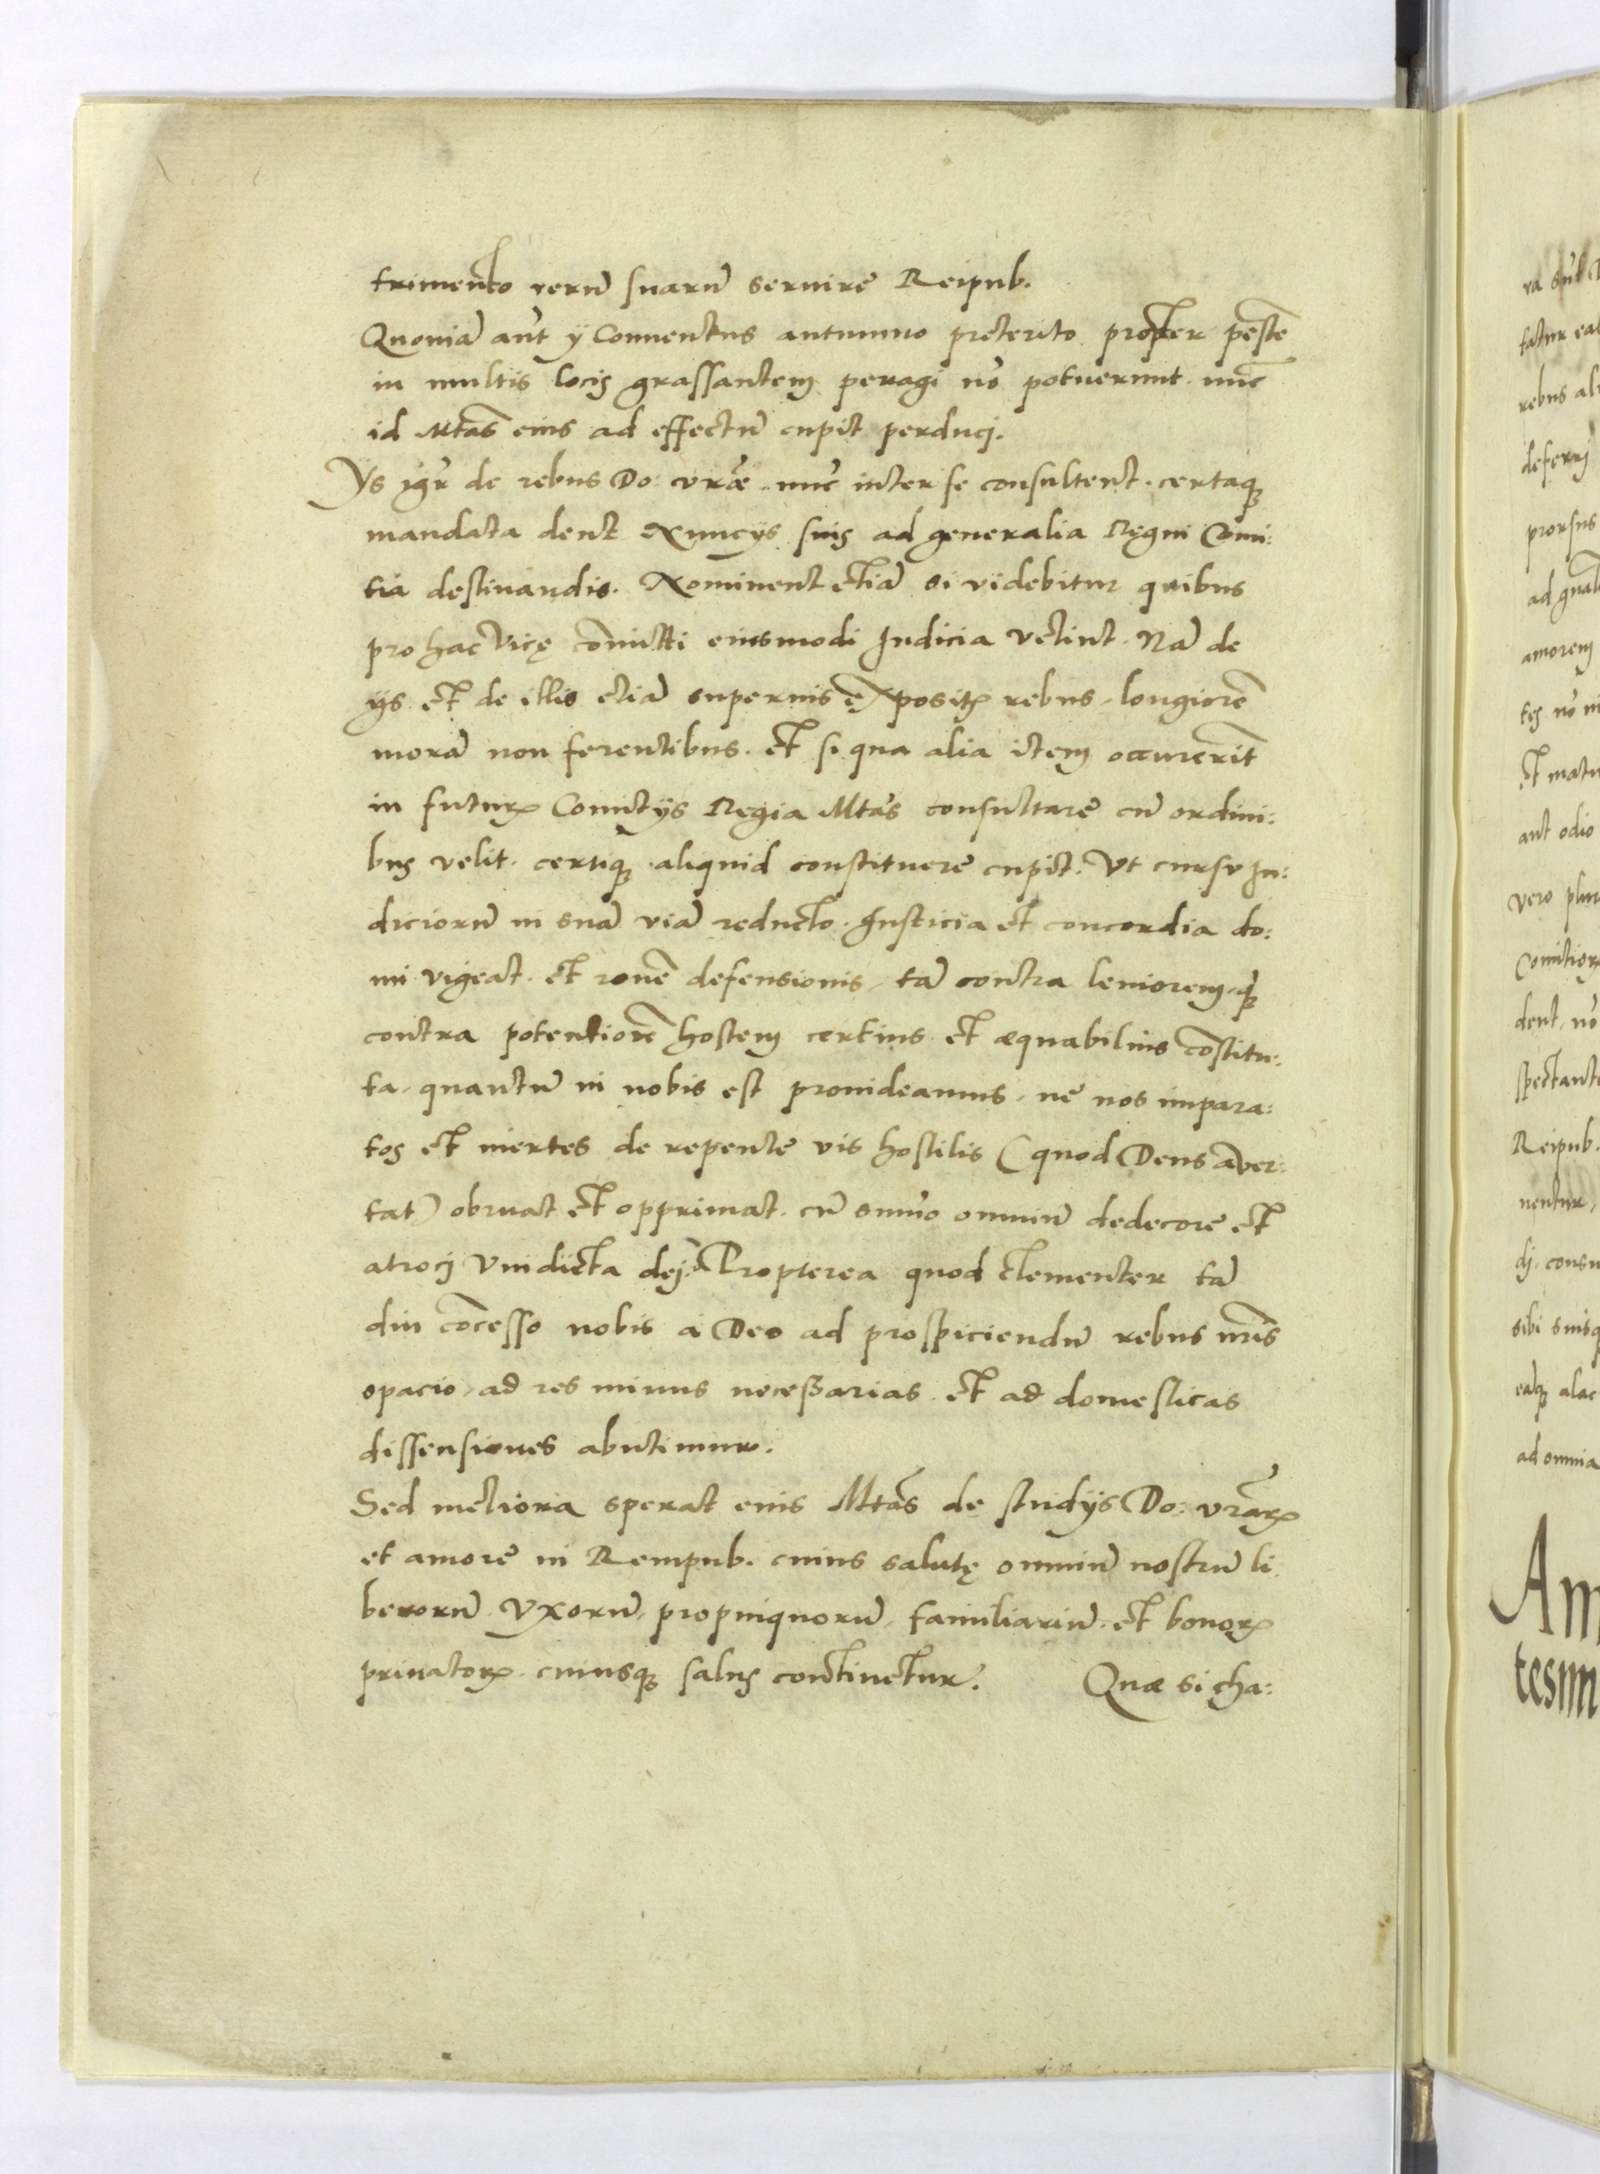 trimento rerū suarū seruire Reipub.
Quoniā aūt ij Conuentus autumno preterito propter pestē
in multis locis grassantem peragi nō potuerunt. nūc
id Mtas eius ad effectū cupit perduci.
Ys igr̄ de rebus Do: vr̄æ nūc inter se consultent. certaq;
mandata dent Nuncijs suis ad generalia Regni Comi:
tia destinandis. Nominent etiā si videbitur quibus
pro hac Vicę cōmitti eiusmodi Iudicia velint. Nā de
ijs et de illis etiā superius expositꝭ rebus, longiorē
morā non ferentibus. et si qua alia item occurerīt
in futurꝭ Comitijs Regia Mtas consultare cū ordini:
bus velit. certiq; aliquid constituere cupit. Vt cursu Iu:
diciorū in suā viā reducto. Iusticia et concordia do:
mi vigeat. et rōne defensionis, tā contra leuiorem, q̄
contra potentiorē hostem certius et æquabilius cōstitu:
ta, quantū in nobis est prouideamus, ne nos impara:
tos et inertes de repente vis hostilis (quod Deus auer:
tat) obruat et opprimat. cū sūmo omniū dedecore et
atroci Vindicta dej. Propterea quod clementer tā
diu cōcesso nobis a Deo ad prospiciendū rebus nr̄is
spacio, ad res minus necessarias et ad domesticas
dissensiones abutimur.
Sed meliora sperat eius Mtas de studijs Do: vr̄arꝝ
et amore in Rempub. cuius salutę omniū nostrū li
berorū. Vxorū, propinquorū, familiariū. et bonorꝝ
priuatorꝝ. cuiusq; salus continetur. Quæ si cha:
ra sūt
tatur
rebus
deferrj
prorsus
ad
amorem
tes nō
et
aut odio
vero
dent, nō
Reipub.
sibi
eaq;
ad omnia
Am